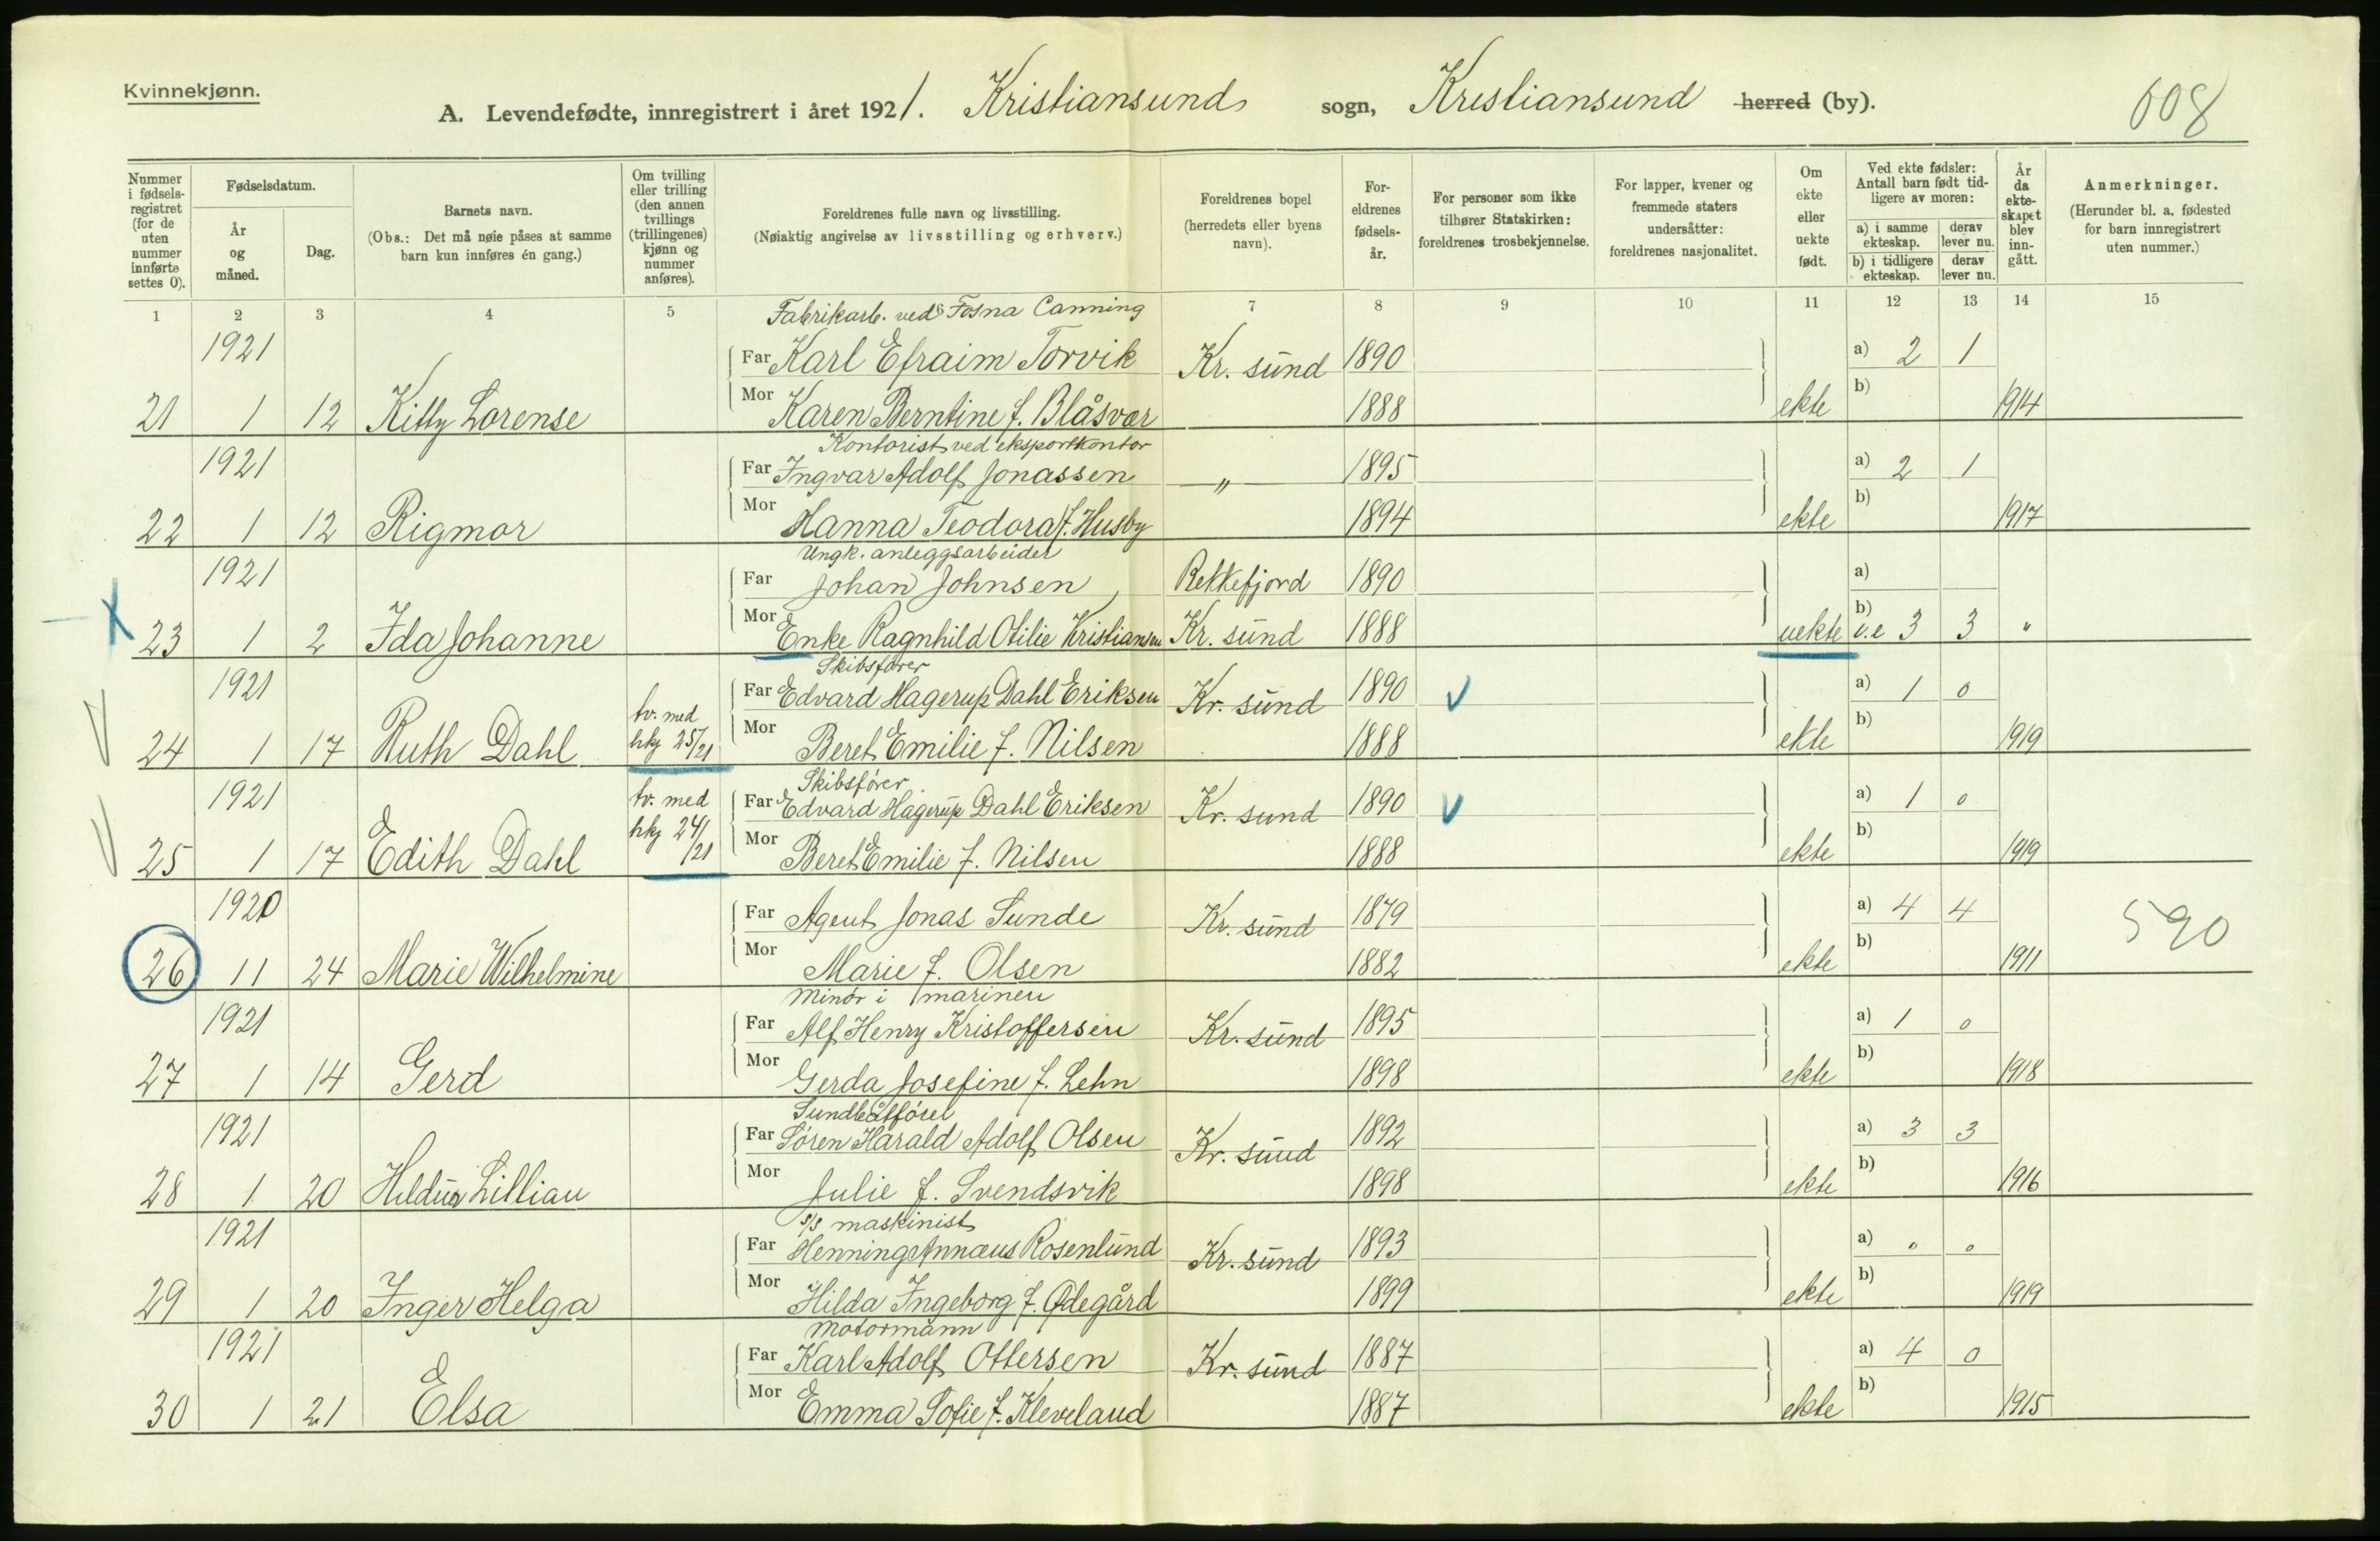 Kvinnekjønn.
A. Levendefødte, innregistrert i året 1921. Kristiansund sogn, Kristiansund herred (by).
608
Nummer i fødselsregistret (for de uten nummer innførte settes 0).
Fødselsdatum.
År og måned.
Dag.
Barnets navn.
(Obs.: Det må nøie påses at samme barn kun innføres én gang.)
Om tvilling eller trilling (den annen tvillings (trillingenes) kjønn og nummer anføres).
Foreldrenes fulle navn og livsstilling.
(Nøiaktig angivelse av livsstilling og erhverv.)
Foreldrenes bopel (herredets eller byens navn).
Foreldrenes fødselsår.
For personer som ikke tilhører Statskirken: foreldrenes trosbekjennelse.
For lapper, kvener og fremmede staters undersåtter: foreldrenes nasjonalitet.
Om ekte eller uekte født.
Ved ekte fødsler: Antall barn født tidligere av moren:
a) i samme ekteskap.
derav lever nu.
b) i tidligere ekteskap.
derav lever nu.
År da ekteskapet blev inngått.
Anmerkninger.
(Herunder bl. a. fødested for barn innregistrert uten nummer.)
1 2 3 4 5 7 8 9 10 11 12 13 14 15
Fabrikarb. ved Fosna Canning
1921 Far Karl Efraim Torvik Kr. sund 1890 a) 2 1
21 1 12 Kitty Lorense Mor Karen Berntine f. Blåsvær 1888 ekte b) 1914
Kontorist ved eksportkontor
1921 Far Ingvar Adolf Jonassen " 1895 a) 2 1
22 1 12 Rigmor Mor Hanna Teodora f. Husby 1894 ekte b) 1917
Ungk. anleggsarbeider
1921 Far Johan Johnsen, Rekkefjord 1890 a)
23 1 2 Ida Johanne Mor Enke Ragnhild Otilie Kristiansen Kr. sund 1888 uekte b) i.e 3 3 "
Skibsfører
1921 tv. med Far Edvard Hagerup Dahl Eriksen Kr. sund 1890 a) 1 0
24 1 17 Ruth Dahl hkj 25/21 Mor Beret Emilie f. Nilsen 1888 ekte b) 1919
Skibsfører
1921 tv. med Far Edvard Hagerup Dahl Eriksen Kr. sund 1890 a) 1 0
25 1 17 Edith Dahl hkj 24/21 Mor Beret Emilie f. Nilsen 1888 ekte b) 1919
1920 Far Agent Jonas Sunde Kr. sund 1879 a) 4 4 590
26 11 24 Marie Wilhelmine Mor Marie f. Olsen 1882 ekte b) 1911
Minør i marinen
1921 Far Alf Henry Kristoffersen Kr. sund 1895 a) 1 0
27 1 14 Gerd Mor Gerda Josefine f. Lehn 1898 ekte b) 1918
Sundbåtfører
1921 Far Søren Harald Adolf Olsen Kr. sund 1892 a) 3 3
28 1 20 Hildur Lillian Mor Julie f. Svendsvik 1898 ekte b) 1916
s/s maskinist
1921 Far Henning Annæus Rosenlund Kr. sund 1893 a) " "
29 1 20 Inger Helga Mor Hilda Ingeborg f. Ødegård 1899 ekte b) 1919
Motormann
1921 Far Karl Adolf Ottersen Kr. sund 1887 a) 4 0
30 1 21 Elsa Mor Emma Sofie f. Kleveland 1887 ekte b) 1915